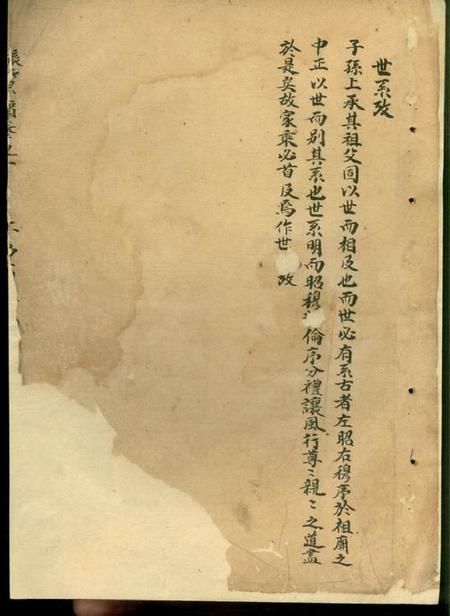 世系攷
子孫上承其祖父固以世而相及也而世必有系古者左昭右穆序於祖廟之
中正以世而別其系也世系明而昭穆倫序分禮讓風行尊〻親〻之道盡
於是矣故家乘必首及焉作世攷